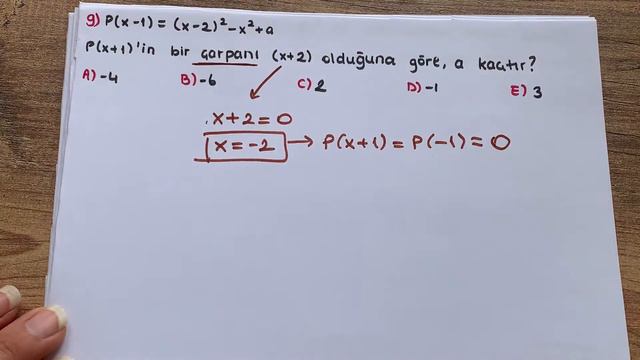 9) P(x-1) = (x-2)² - x² + a
P(x+1)'in bir çarpanı (x+2) olduğuna göre, a kaçtır?
A) -4 B) -6 C) 2 D) -1 E) 3
x+2=0
x=-2 → P(x+1) = P(-1) = 0